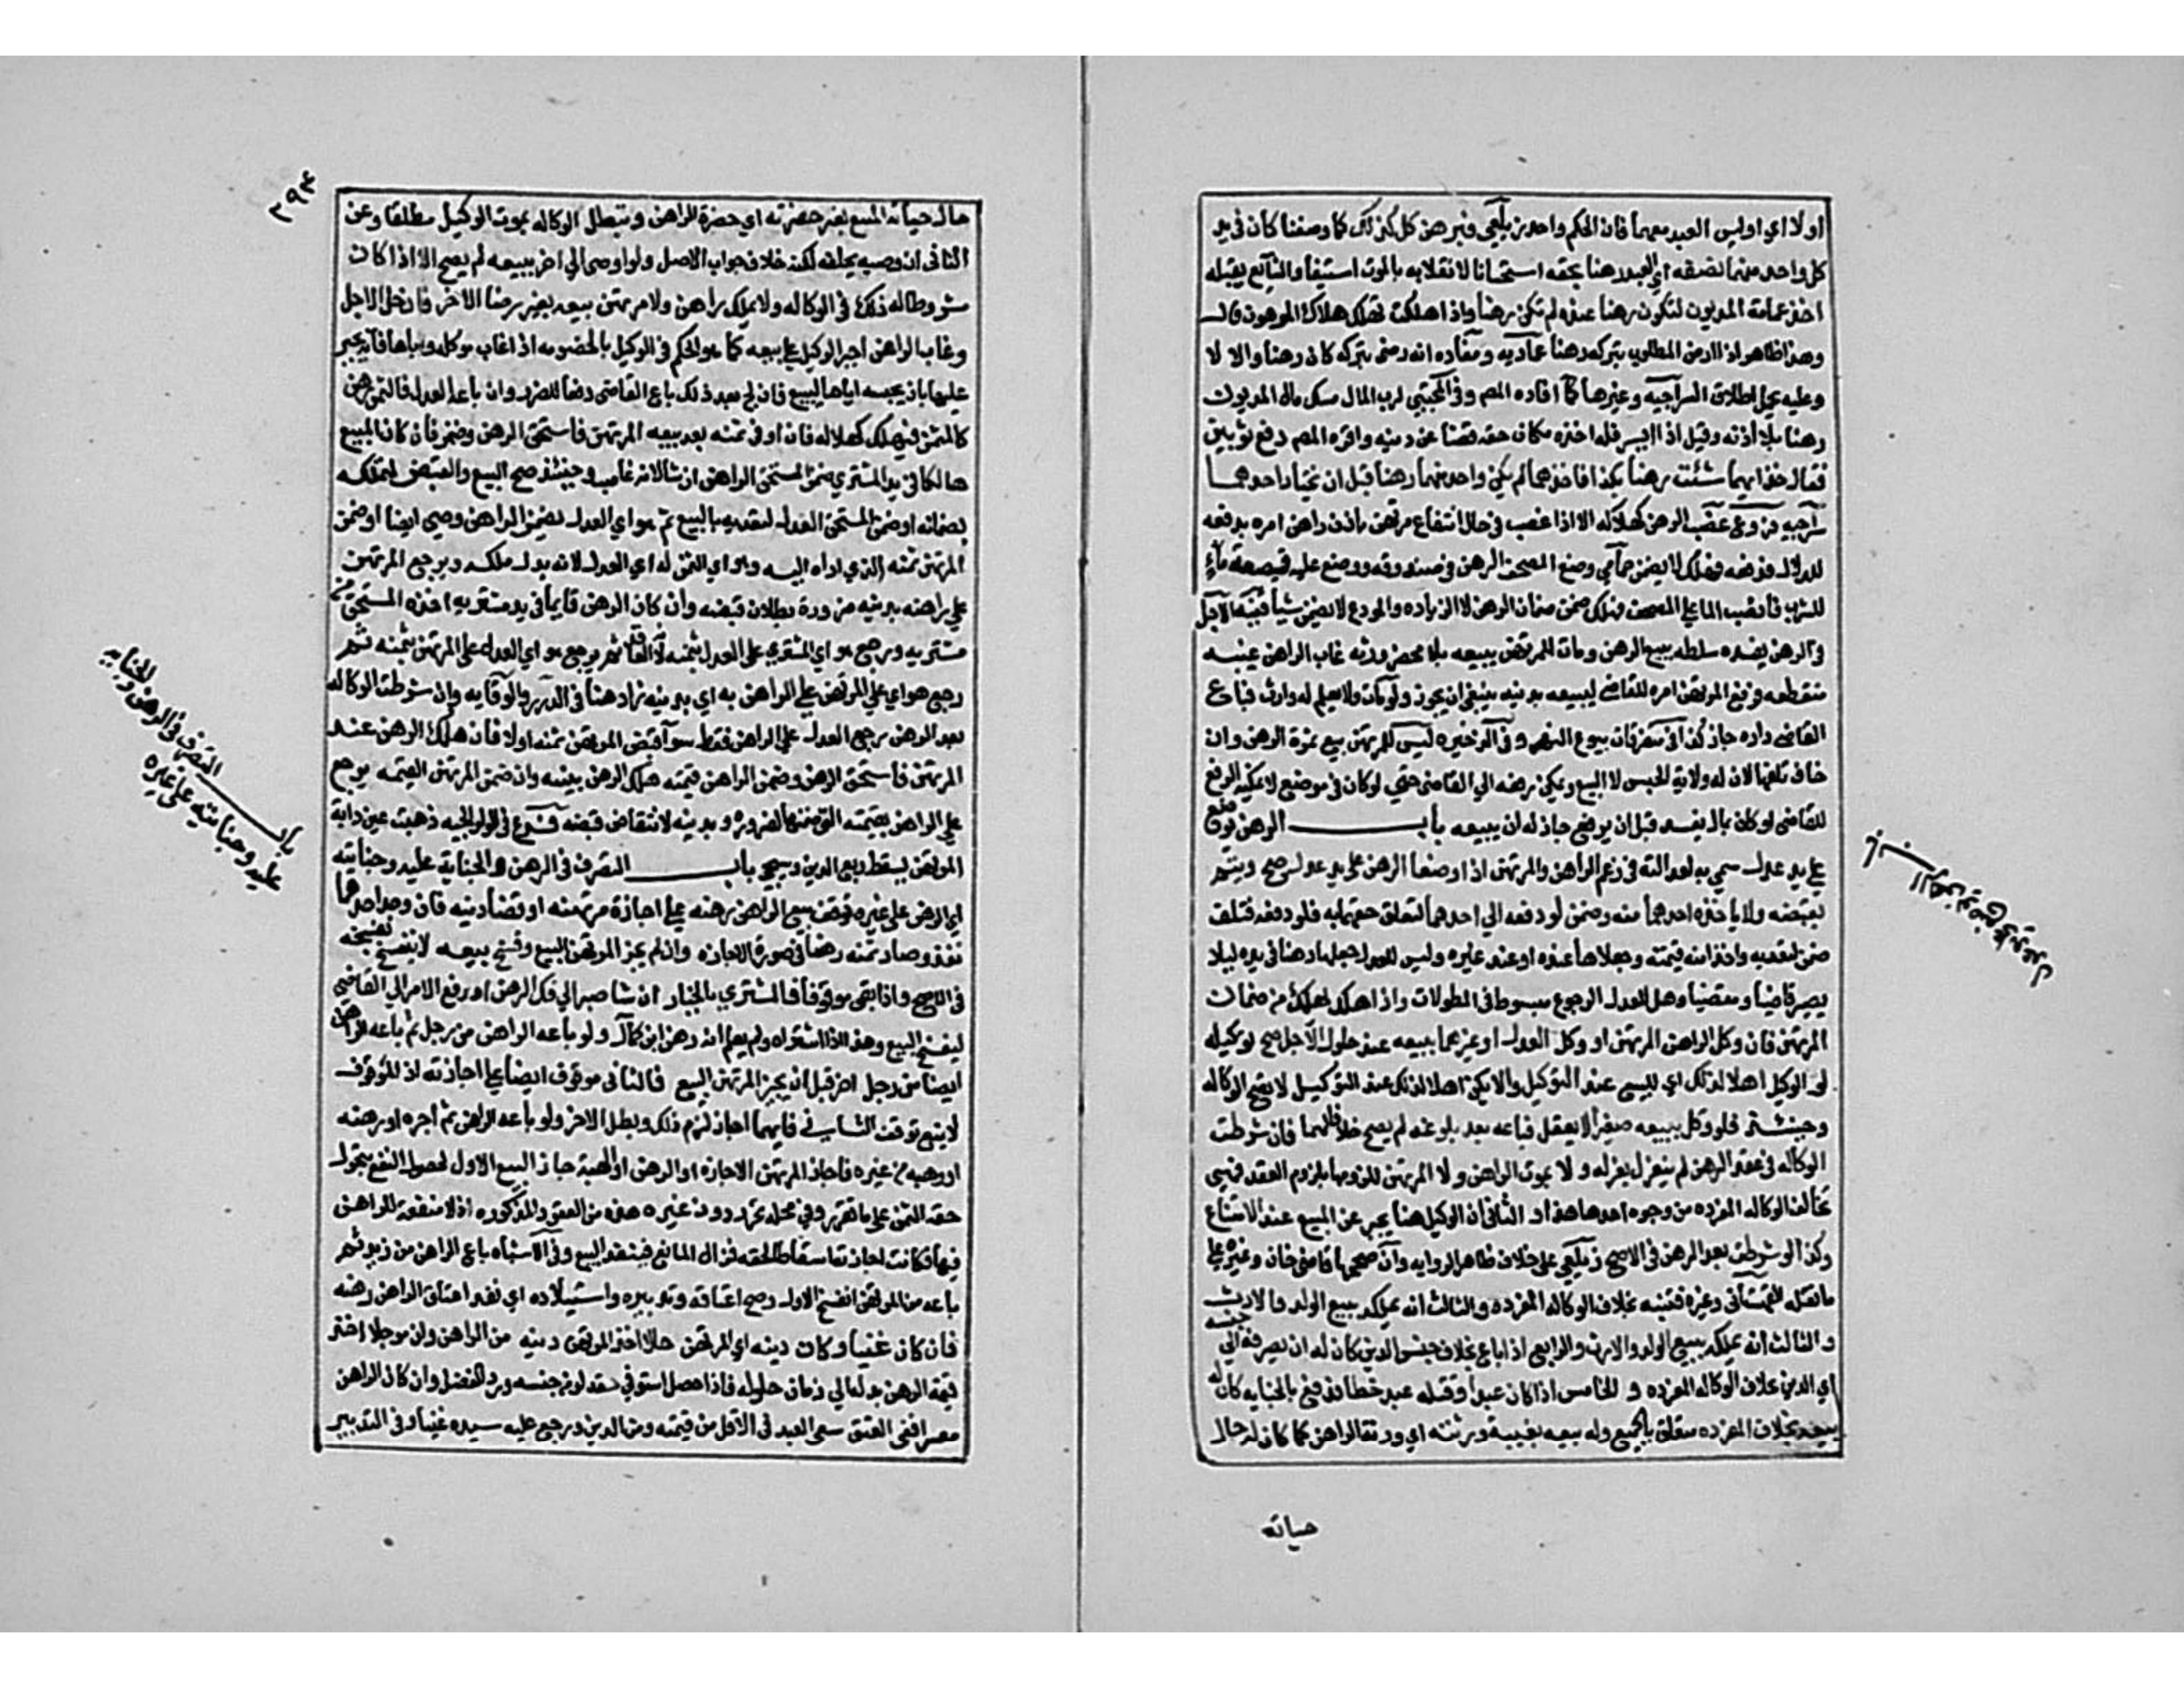 اولا اي اوليس العبد معهما فان الحكم واحد زيلعي فبرهن كل كذلك كما وصفنا كان في يد
كل واحد منهما نصفه اي العبد رهنا بحقه استحسانا لانقلابه بالموت استيفا والشايع يقبله
اخذ عمامة المديون لتكون رهنا عنده لم تكن رهنا واذا هلكت تهلك هلاك المرهون قال
وهذا ظاهر اذا رضي المطلوب بتركه رهنا عمادية ومفاده انه رضي بتركه كان رهنا والا لا
وعليه يحمل اطلاق السراجيه وغيرها كما افاده المص وفي المجتبي لرب المال مسك مال المديون
رهنا بلا اذنه وقيل اذا ايس فله اخذه مكان حقه قضا عن دينه واقره المص دفع ثوبين
فقال خذ ايهما شئت رهنا بكذا فاخذهما لم يكن واحد منهما رهنا قبل ان يختار احدهما
سراجيه غصب الرهن كهلاكه الا اذا غصب في حال انتفاع مرتهن باذن راهن امره بدفعه
للدلال فدفعه فهلك لا يضمن حمامي وضع المصحف الرهن في صندوقه ووضع عليه قصعة ماء
للشرب فانصب الما علي المصحف فهلك ضمن ضمان الرهن لا الزياده والمودع لا يضمن شيا قنيه الاجل
في الرهن يفسده سلطه ببيع الرهن ومات للمرتهن بيعه بلا محضر ورثته غاب الراهن غيبه
منقطعه فرفع المرتهن امره للقاضي ليبيعه بدينه ينبغي ان يجوز ولو مات ولا يعلم له وارث فباع
القاضي داره جاز كذا في متفرقات بيوع النهر وفي الذخيره ليس للمرتهن بيع ثمرة الرهن وان
خاف تلفها لان له ولاية الحبس لا البيع ويمكن رفعه الي القاضي حتي لو كان في موضع لا يمكنه الرفع
للقاضي او كان بحال يفسد قبل ان يرفع جاز له ان يبيعه باب الرهن يوضع
علي يد عدل سمي به لعدالته في زعم الراهن والمرتهن اذا وضعا الرهن علي يد عدل صح ويتم
بقبضه ولا ياخذه احدهما منه وضمن لو دفعه الي احدهما لتعلق حقهما به فلو دفعه فتلف
ضمن لتعديه واخذا منه قيمته وجعلاها عنده او عند غيره وليس للعدل جعلها رهنا في يده ليلا
يصير قاضيا ومقتضيا وهل للعدل الرجوع مبسوط في المطولات واذا هلك يهلك من ضمان
المرتهن فان وكل الراهن المرتهن او وكل العدل او غيرهما ببيعه عند حلول الاجل صح توكيله
لو الوكيل اهلا لذلك اي للبيع عند التوكيل والا يكن اهلا لذلك عند التوكيل لا تصح الوكاله
وحينئذ فلو وكل ببيعه صغيرا لا يعقل فباعه بعد بلوغه لم يصح خلافا لهما فان شرطت
الوكاله في عقد الرهن لم ينعزل بعزله ولا بموت الراهن ولا المرتهن للزومها بلزوم العقد فهي
تخالف الوكاله المفرده من وجوه احدها هذا و الثاني ان الوكيل هنا يجبر عن البيع عند الامتناع
وكذا لو شرطت بعد الرهن في الاصح زيلعي علي خلاف ظاهر الروايه وان صححها قاضي خان وغيره علي
ما نقله القهستاني وغيره فتنبه بخلاف الوكاله المفرده والثالث انه يملك بيع الولد والارش
والثالث انه يملك بيع الولد والارش والرابع اذا باع بخلاف جنس الدين كان له ان يصرفه الي جنسه
اي الدين بخلاف الوكاله المفرده و الخامس اذا كان عبدا وقتله عبد خطا فدفع بالجنايه كان له
بيعه بخلاف المفرده متعلق بالجميع وله بيعه بغيبة ورثته اي ورثة الراهن كما كان له حال
حياته
باب الرهن يوضع علي يد عدل
٢٩٤
حال حياته البيع بغير حضرته اي حضرة الراهن وتبطل الوكاله بموت الوكيل مطلقا وعن
الثاني ان وصيه يخلفه لكنه خلاف جواب الاصل ولو اوصي الي اخر ببيعه لم يصح الا اذا كان
مشروطا له ذلك في الوكاله ولا يملك راهن ولا مرتهن بيعه بغير رضا الاخر فان حل الاجل
وغاب الراهن اجبر الوكيل علي بيعه كما هو الحكم في الوكيل بالخصومه اذا غاب موكله واباها فانه يجبر
عليها بان يحبسه اياما ليبيع فان لج بعد ذلك باع القاضي دفعا للضرر وان باعه العدل فالثمن رهن
كالمثمن فيهلك كهلاكه فان اوفي ثمنه بعد بيعه المرتهن فاستحق الرهن وضمن فان كان المبيع
هالكا في يد المشتري ضمن المستحق الراهن ان شا لانه غاصب وحينئذ صح البيع والقبض لتملكه
بضمانه او ضمن المستحق العدل لتعديه بالبيع ثم هو اي العدل يضمن الراهن وصح ايضا او ضمن
المرتهن ثمنه الذي اداه اليه وهو اي الثمن له اي العدل لانه بدل ملكه ويرجع المرتهن
علي راهنه بدينه ضرورة بطلان قبضه وان كان الرهن قايما في يد مشتريه اخذه المستحق من
مشتريه ورجع هو اي المشتري علي العدل بثمنه لانه العاقد ثم يرجع هو اي العدل علي المرتهن بثمنه ثم
رجع هو اي المرتهن علي الراهن به اي بدينه زاد هنا في الدرر والوقايه وان شرطت الوكاله
بعد الرهن رجع العدل علي الراهن فقط سوا قبض المرتهن ثمنه اولا فان هلك الرهن عند
المرتهن فاستحق الرهن وضمن الراهن قيمته هلك الرهن بدينه وان ضمن المرتهن القيمه يرجع
علي الراهن بقيمته التي ضمنها للضرر وبدينه لانتقاض قبضه فرع في الولوالجيه ذهبت عين دابة
المرتهن يسقط ربع الدين وسيجي باب التصرف في الرهن والجناية عليه وجنايته
اي الرهن علي غيره توقف بيع الراهن رهنه علي اجازة مرتهنه او قضا دينه فان وجد احدهما
نفذ وصار ثمنه رهنا في صورة الاجازه وان لم يجز المرتهن البيع وفسخ بيعه لا ينفسخ بفسخه
في الاصح واذا بقي موقوفا فالمشتري بالخيار ان شا صبر الي فك الرهن او رفع الامر الي القاضي
ليفسخ البيع وهذا اذا اشتراه ولم يعلم انه رهن ابن كمال ولو باعه الراهن من رجل ثم باعه الراهن
ايضا من رجل اخر قبل ان يجيز المرتهن البيع فالثاني موقوف ايضا علي اجازته اذ الموقوف
لا يمنع توقف الثاني فايهما اجاز لزم ذلك وبطل الاخر ولو باعه الراهن ثم اجره او رهنه
او وهبه من غيره فاجاز المرتهن الاجاره او الرهن او الهبة جاز البيع الاول لحصول النفع بتحول
حقه للثمن علي ما تقرر وفي محله تحرر دون غيره من هذه العقود المذكوره اذ لا منفعة للراهن
فيها فكانت اجازته اسقاطا لحقه فزال المانع فينفذ البيع وفي الاشباه باع الراهن من زيد ثم
باعه من المرتهن انفسخ الاول وصح اعتاقه وتدبيره واستيلاده اي نفذ اعتاق الراهن رهنه
فان كان غنيا وكان دينه اي المرتهن حالا اخذ المرتهن دينه من الراهن وان موجلا اخذ
قيمة الرهن بدله الي زمان حلوله فاذا حصل استوفي حقه لو من جنسه ورد الفضل وان كان الراهن
معسرا ففي العتق سعي العبد في الاقل من قيمته ومن الدين ورجع علي سيده غنيا وفي التدبير
باب التصرف في الرهن والجنايه
عليه وجنايته علي غيره